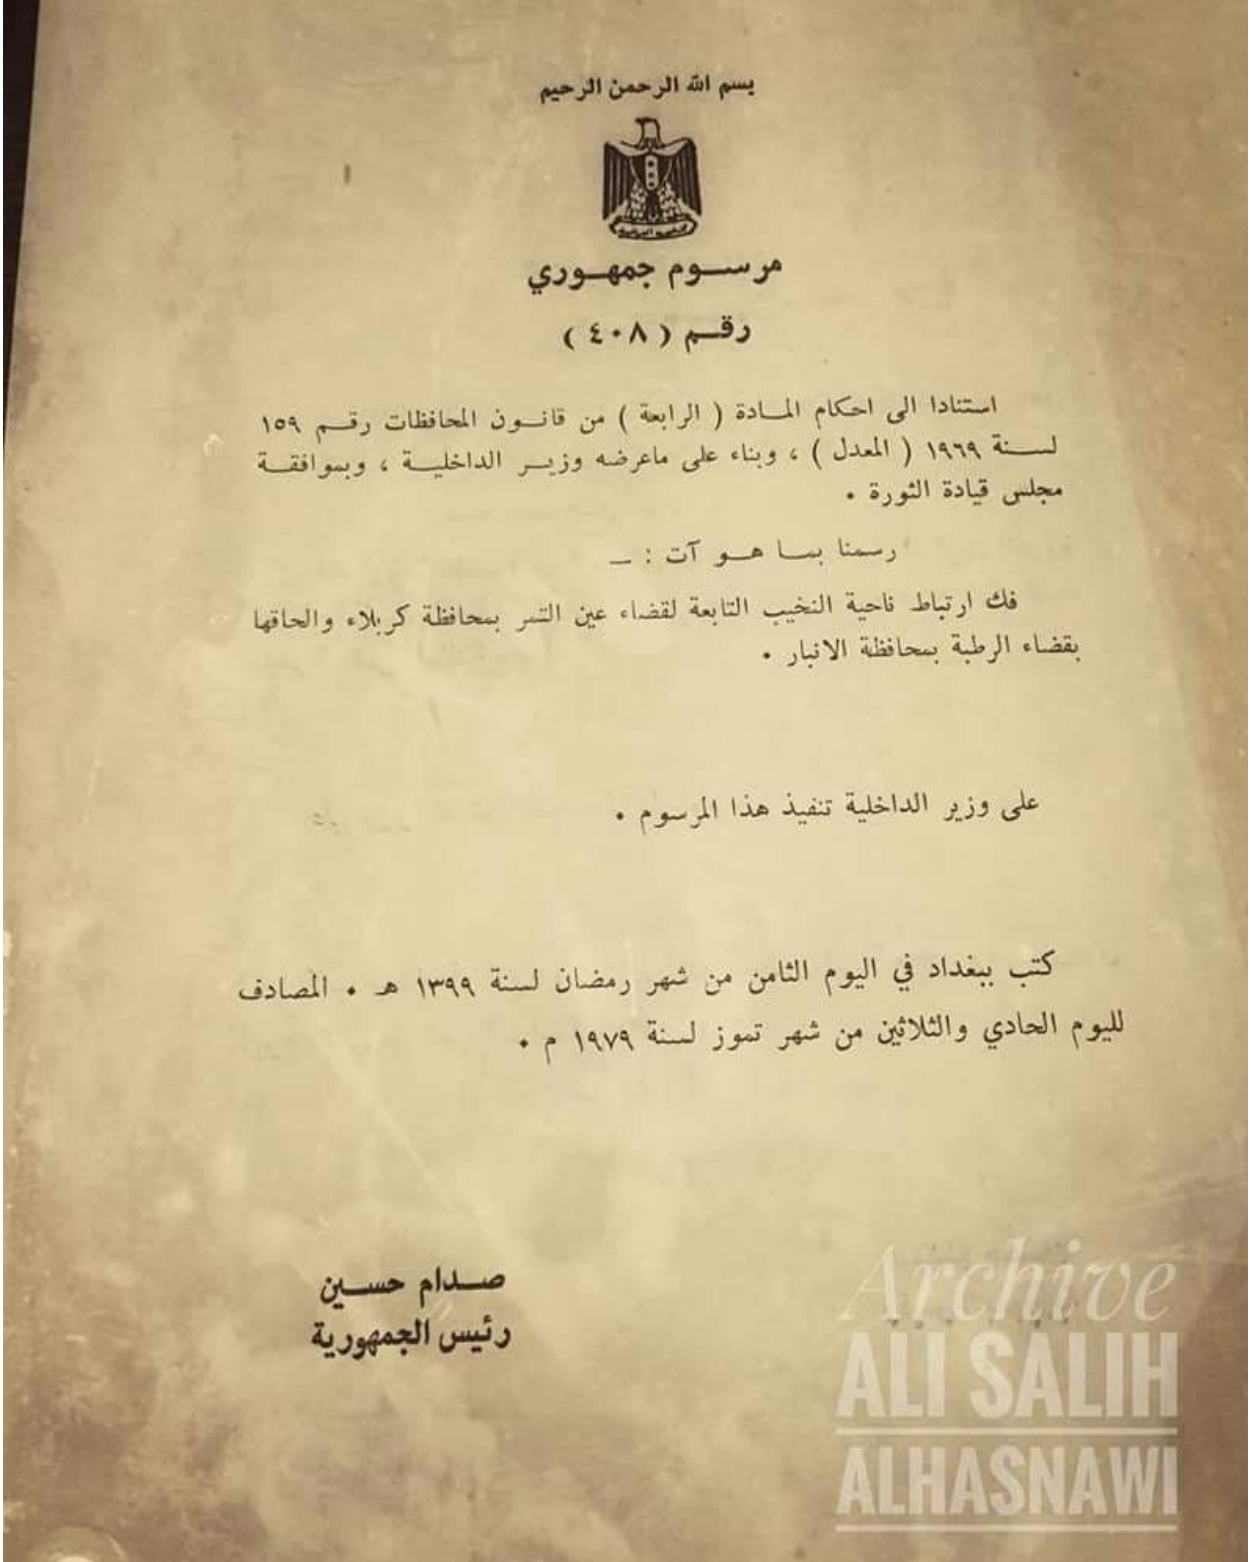 بسم الله الرحمن الرحيم
مرســوم جمهــوري
رقــم ( ٤٠٨ )
استنادا الى احكام المــادة ( الرابعة ) من قانــون المحافظات رقــم ١٥٩
لســنة ١٩٦٩ ( المعدل ) ، وبناء على ماعرضه وزيــر الداخليــة ، وبموافقــة
مجلس قيادة الثورة ٠
رسمنا بمــا هــو آت : ــ
فك ارتباط ناحية النخيب التابعة لقضاء عين التمر بمحافظة كربلاء والحاقها
بقضاء الرطبة بمحافظة الانبار ٠
على وزير الداخلية تنفيذ هذا المرسوم ٠
كتب ببغداد في اليوم الثامن من شهر رمضان لسنة ١٣٩٩ هـ ٠ المصادف
لليوم الحادي والثلاثين من شهر تموز لسنة ١٩٧٩ م ٠
صــدام حســين
رئيس الجمهورية
Archive
ALI SALIH
ALHASNAWI